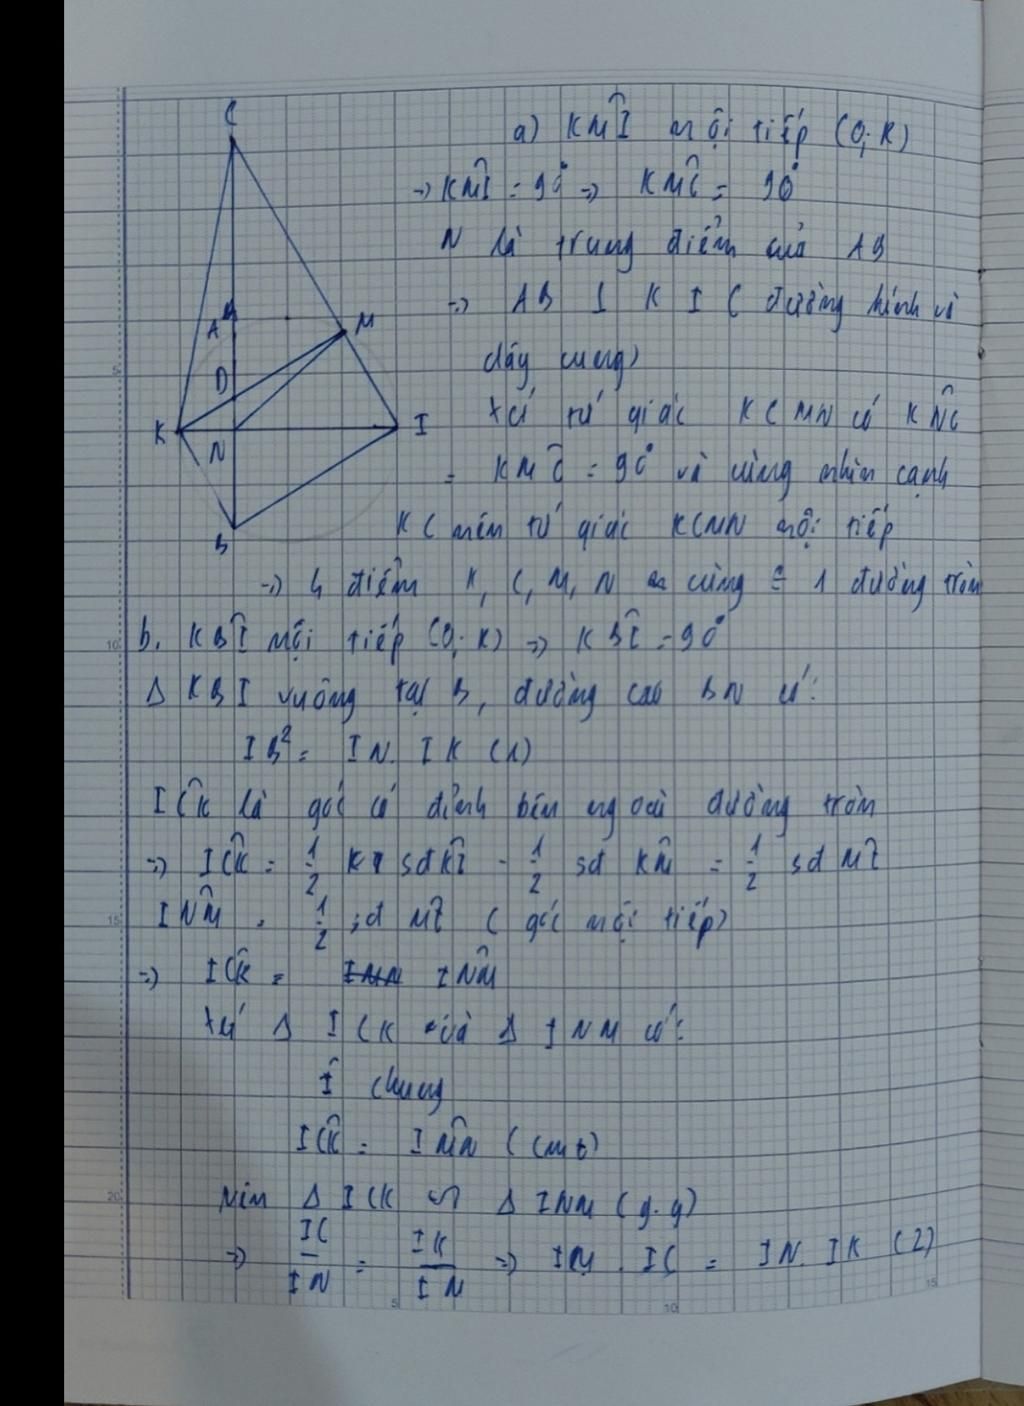 C
A
M
D
K
N
I
B
a) KM̂I nội tiếp (O; R)
=> KM̂I = 90° => KM̂C = 90°
N là trung điểm của AB
=> AB ⊥ KI (đường kính và
dây cung)
xét tứ giác KCMN có KN̂C
= KM̂C = 90° và cùng nhìn cạnh
KC nên tứ giác KCMN nội tiếp
=> 4 điểm K, C, M, N cùng ∈ 1 đường tròn
b. KB̂I nội tiếp (O; R) => KB̂I = 90°
Δ KBI vuông tại B, đường cao BN có:
IB² = IN. IK (1)
IĈK là góc có đỉnh bên ngoài đường tròn
=> IĈK = 1/2 sđ KI - 1/2 sđ KM = 1/2 sđ MI
IN̂M = 1/2 sđ MI (góc nội tiếp)
=> IĈK = IN̂M
xét Δ ICK và Δ INM có:
Î chung
IĈK = IM̂N (cmt)
Nên Δ ICK ∽ Δ INM (g.g)
=> IC/IN = IK/IM => IM. IC = IN. IK (2)